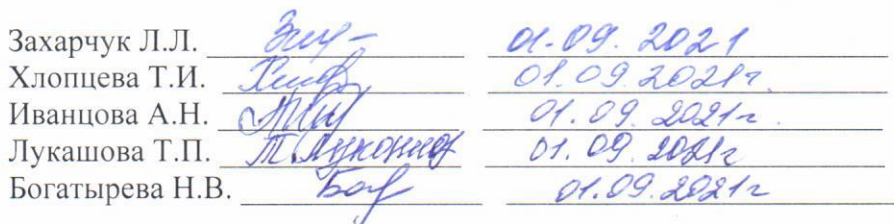 Захарчук Л.Л. 01.09.2021
Хлопцева Т.И. 01.09.2021г.
Иванцова А.Н. 01.09.2021г.
Лукашова Т.П. 01.09.2021г
Богатырева Н.В. 01.09.2021г